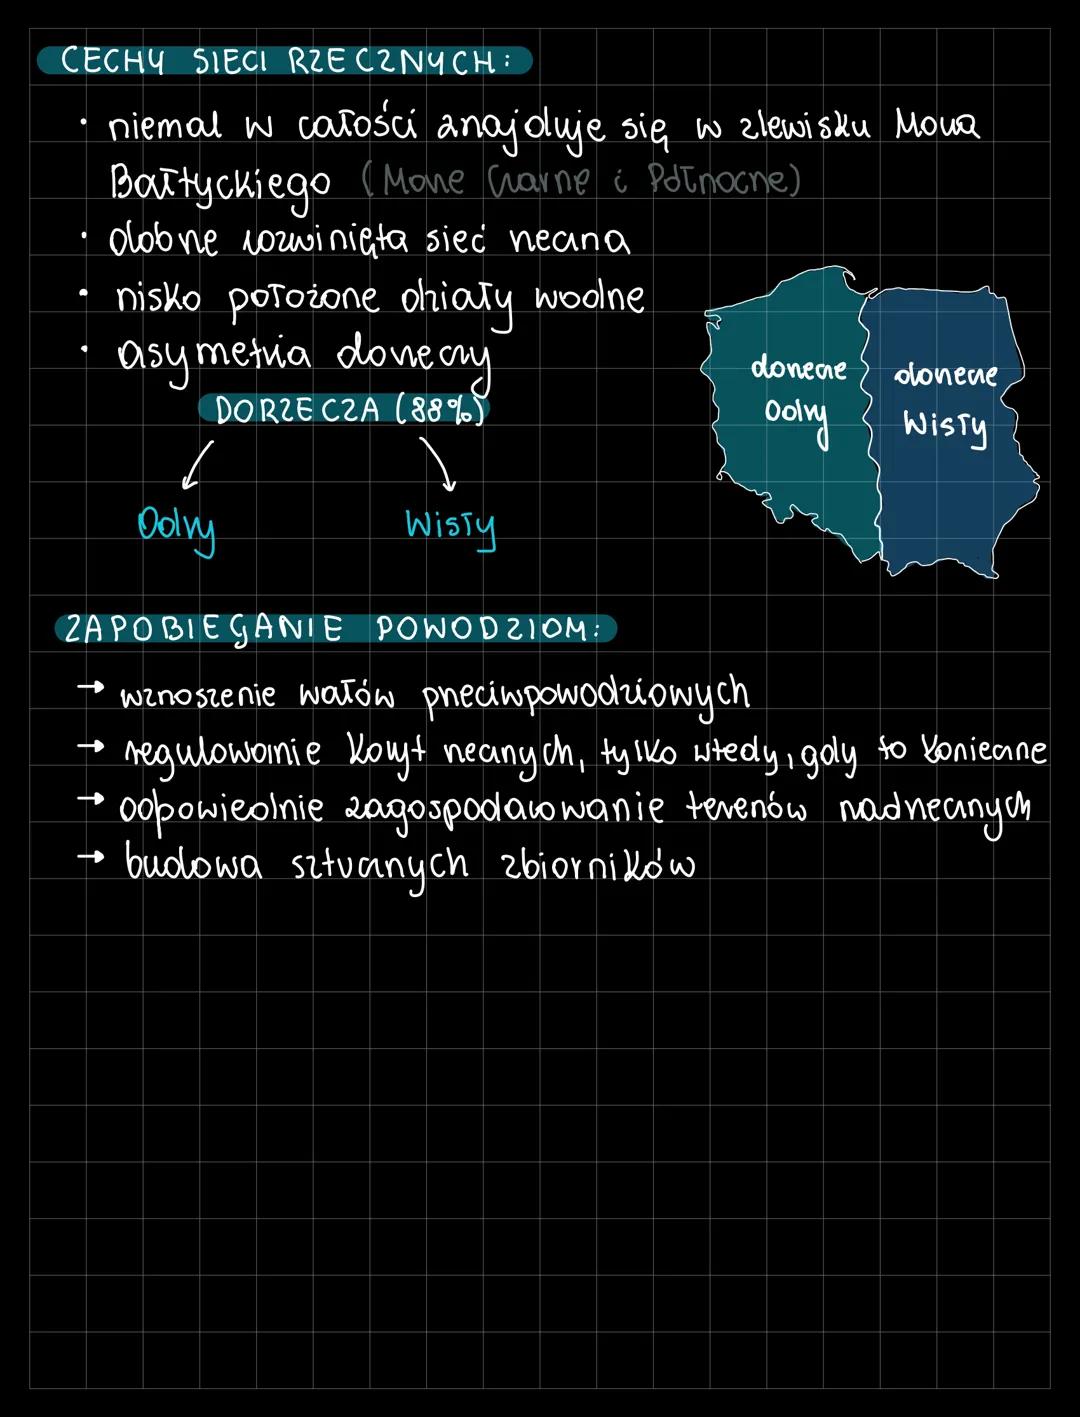 CECHY SIECI RZECZNYCH:
• niemal w całości znajduje się w zlewisku Morza
Bałtyckiego (Morze Czarne i Północne)
• dobrze rozwinięta sieć rzeczna
• nisko położone działy wodne
• asymetria dorzeczy
DORZECZA (88%)
Odry Wisły
dorzecze
Odry
dorzecze
Wisły
ZAPOBIEGANIE POWODZIOM:
→ wznoszenie wałów przeciwpowodziowych
→ regulowanie koryt rzecznych, tylko wtedy, gdy to konieczne
→ odpowiednie zagospodarowanie terenów nadrzecznych
→ budowa sztucznych zbiorników